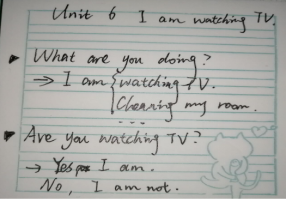 Unit 6 I am watching TV.
▶ What are you doing?
→ I am { watching TV.
Cleaning my room.
...
▶ Are you watching TV?
→ Yes I am.
No, I am not.